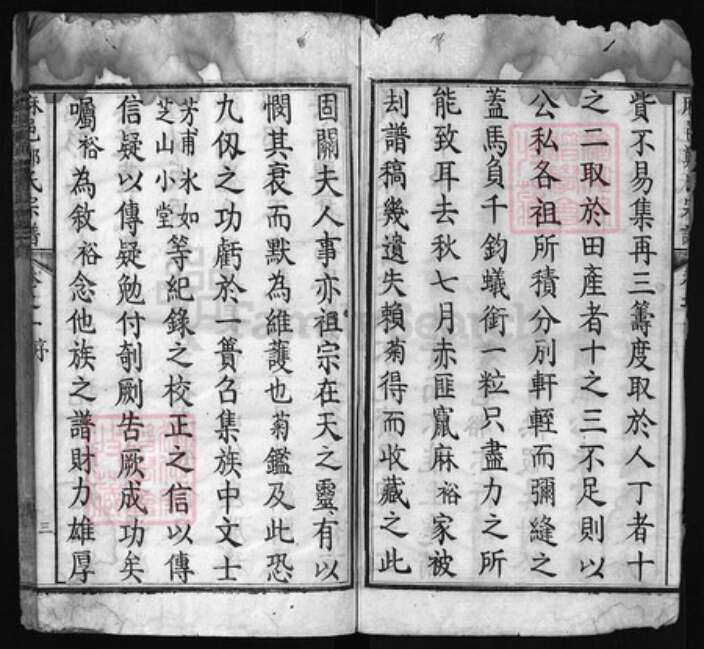 貲不易集再三籌度取於人丁者十
之二取於田產者十之三不足則以
公私各祖所積分別軒輊而彌縫之
蓋馬負千鈞蟻銜一粒只盡力之所
能致耳去秋七月赤匪竄麻裕家被
刦譜稿幾遺失賴菊得而收藏之此
固關夫人事亦祖宗在天之靈有以
憫其衰而默為維護也菊鑑及此恐
九仭之功虧於一簣召集族中文士
芳甫氷如
芝山小堂等紀錄之校正之信以傳
信疑以傳疑勉付剞劂告厥成功矣
囑裕為敘裕念他族之譜財力雄厚
氏宗譜
三
FamilySearch